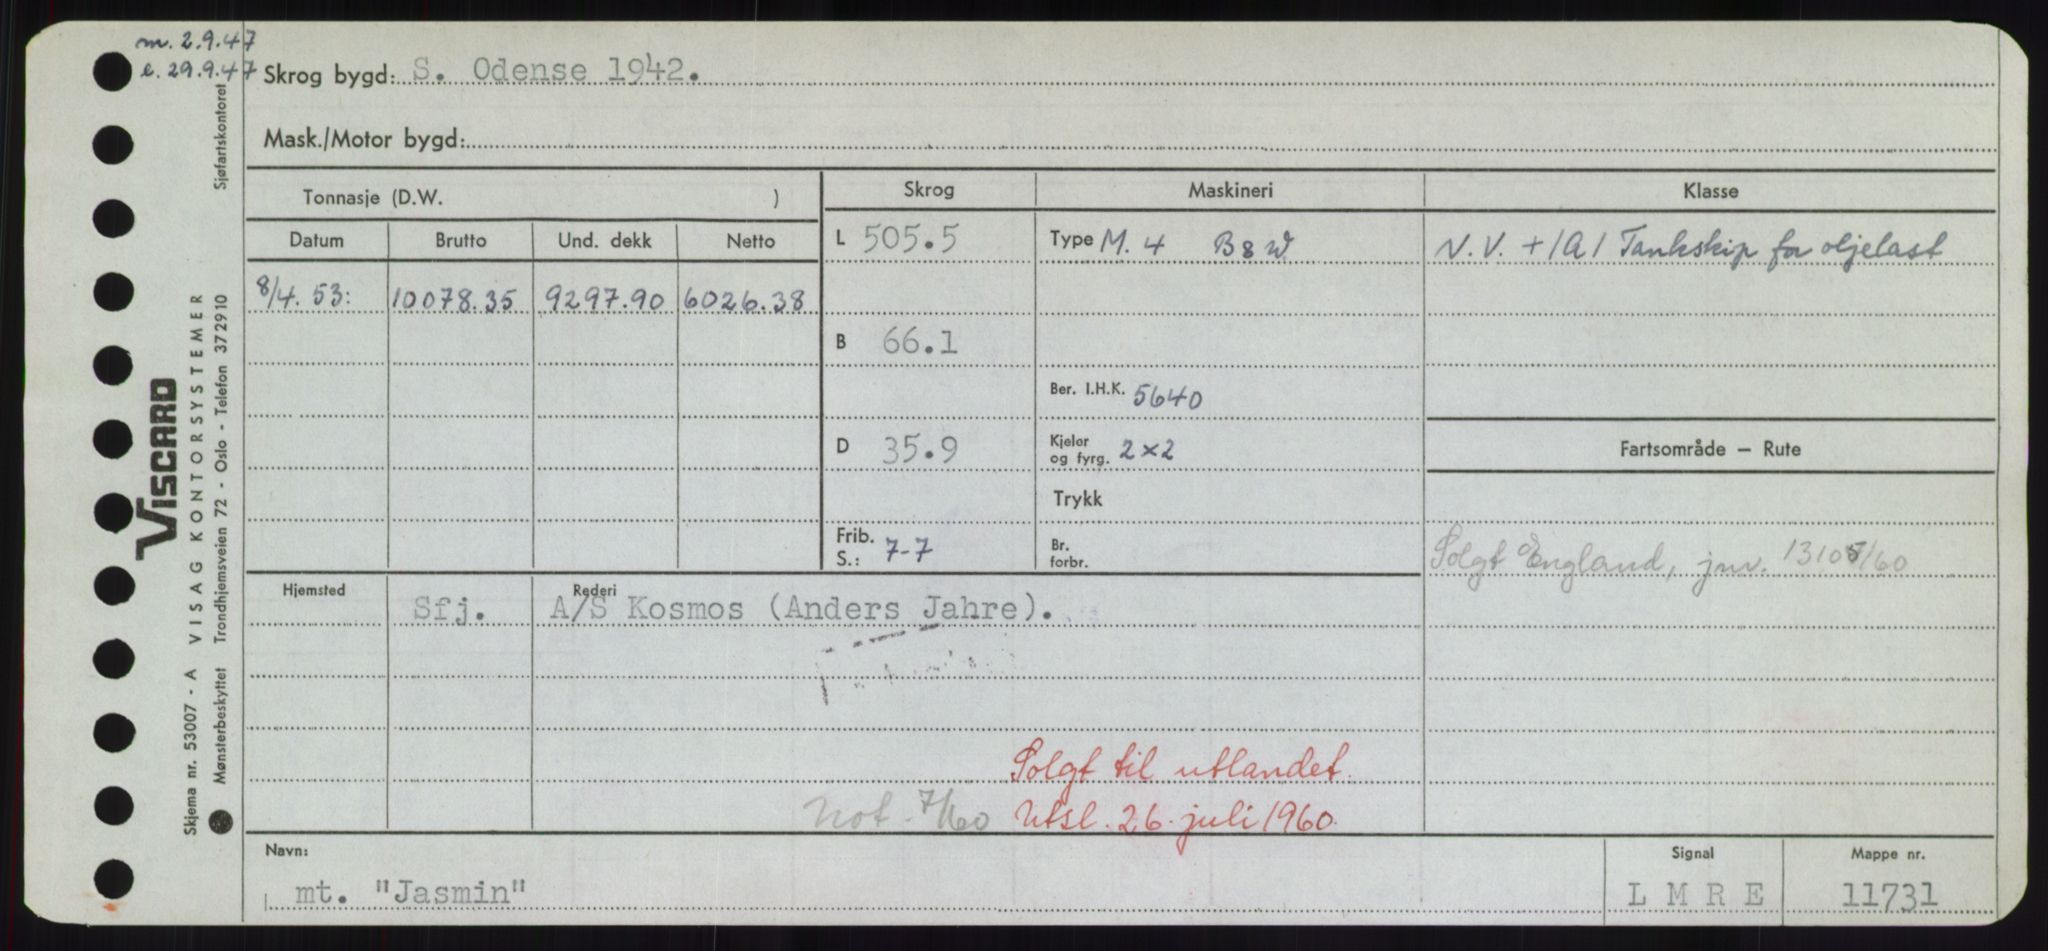 m. 2.9.47
e. 29.9.47
Skrog bygd: S. Odense 1942.
Mask./Motor bygd:
Tonnasje (D.W. )
Skrog
Maskineri
Klasse
Datum Brutto Und. dekk Netto
L 505.5
Type M. 4 B&W
N.V. + 1A1 Tankskip for oljelast
8/4. 53: 10078.35 9297.90 6026.38
B 66.1
Ber. I.H.K. 5640
D 35.9
Kjeler og fyrg. 2x2
Fartsområde — Rute
Trykk
Frib. S.: 7-7
Br. forbr.
Solgt England, jnr. 13105/60
Hjemsted
Rederi
Sfj. A/S Kosmos (Anders Jahre).
Solgt til utlandet.
Not. 7/60 Utsl. 26. juli 1960.
Navn:
mt. "Jasmin"
Signal
L M R E
Mappe nr.
11731
VISCARD
Skjema nr. 53007 - A VISAG KONTORSYSTEMER
Mønsterbeskyttet Trondhjemsveien 72 - Oslo - Telefon 372910 Sjøfartskontoret